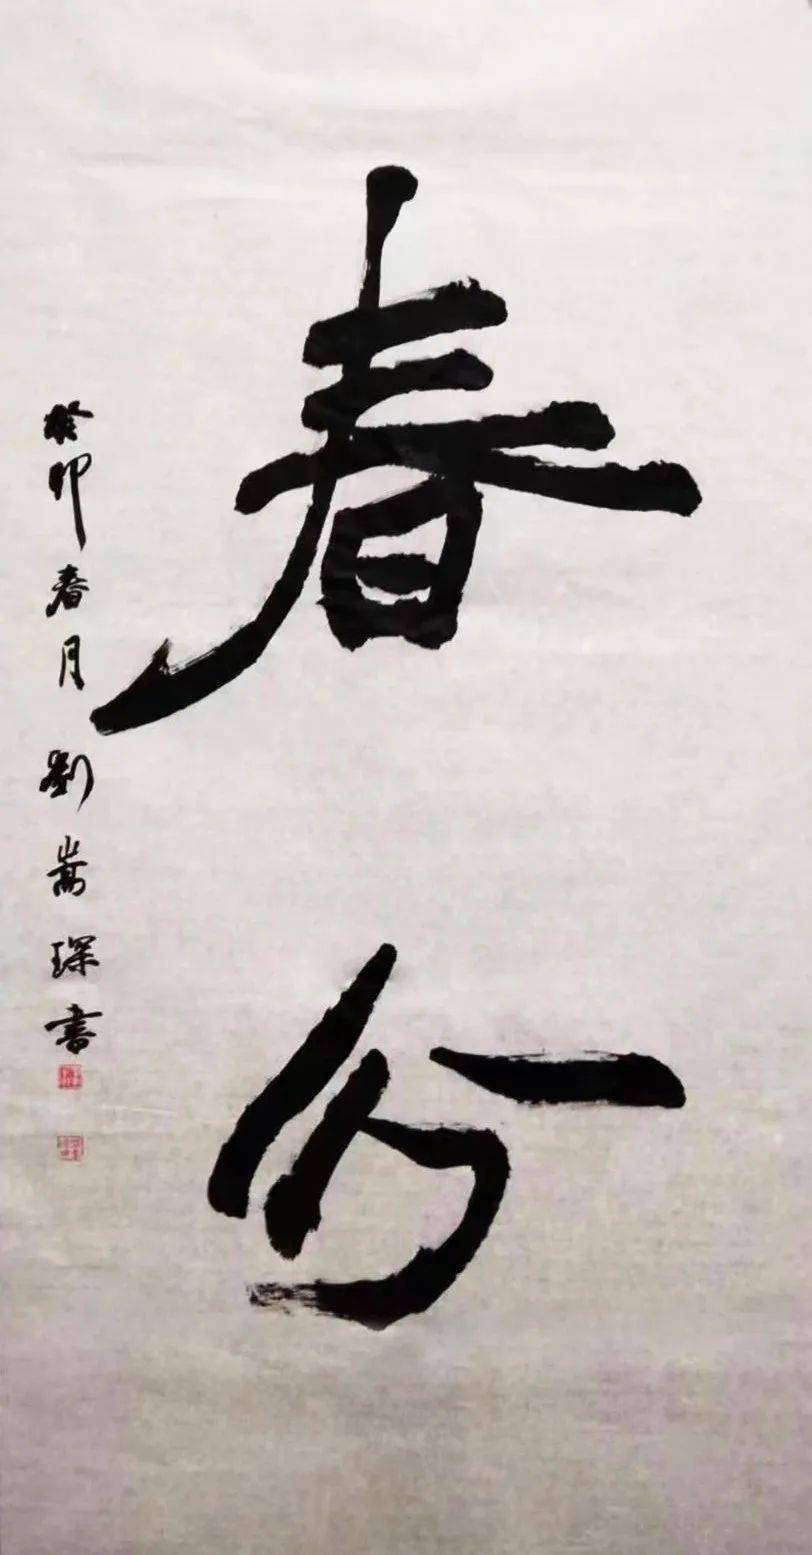 春分
癸卯春月劉嵩琛書